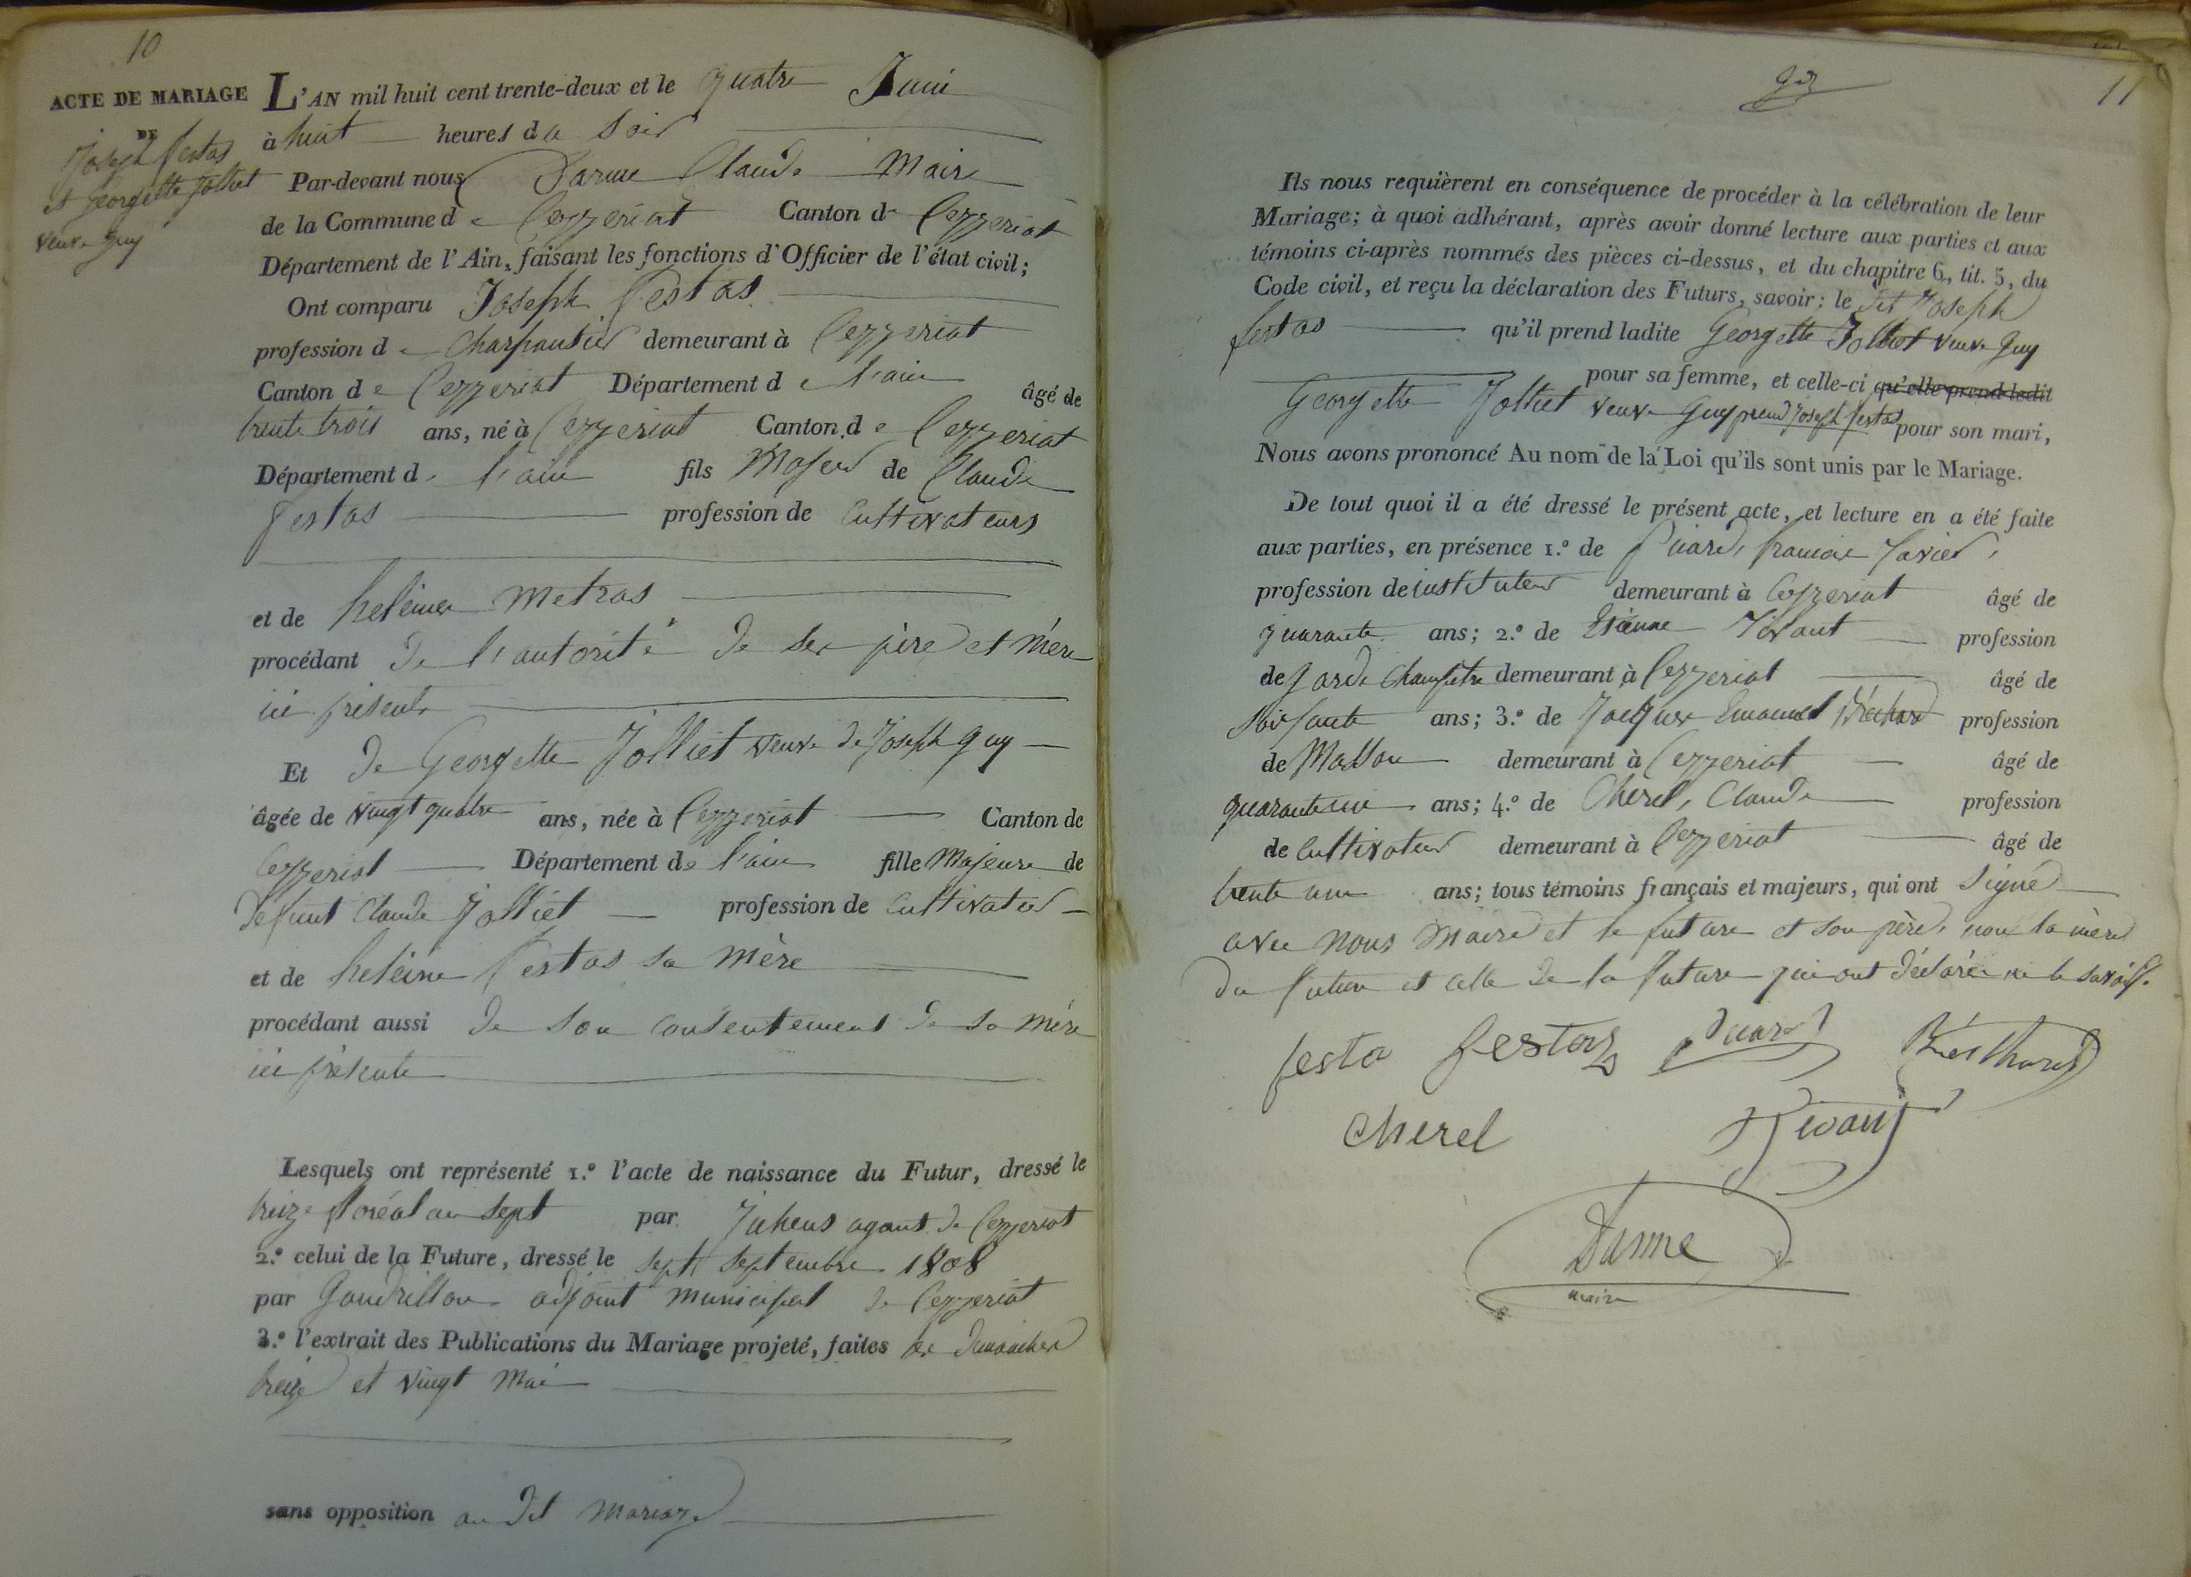 10
ACTE DE MARIAGE
DE
Joseph festas
et Georgette Jolliet
veuve Guy
L'AN mil huit cent trente-deux et le quatre Juin
à huit heures du soir
Par-devant nous Darme Claude Maire
de la Commune de Ceyzeriat Canton de Ceyzeriat
Département de l'Ain, faisant les fonctions d'Officier de l'état civil;
Ont comparu Joseph festas
profession de Charpantier demeurant à Ceyzeriat
Canton de Ceyzeriat Département de l'ain âgé de
trente trois ans, né à Ceyzeriat Canton de Ceyzeriat
Département de l'ain fils Majeur de Claude
festas profession de Cultivateurs
et de heleine Metras
procédant de l'autorité de ses père et mère
ici présents
Et de Georgette Jolliet veuve de Joseph Guy
âgée de vingt quatre ans, née à Ceyzeriat Canton de
Ceyzeriat Département de l'ain fille Majeure de
défunt Claude Jolliet profession de Cultivateur
et de heleine festas sa mère
procédant aussi de son consentement de sa mère
ici présente
Lesquels ont représenté 1.º l'acte de naissance du Futur, dressé le
treize floréal an sept par agant de Ceyzeriat
2.º celui de la Future, dressé le sept septembre 1808
par Gaudrillon adjoint municipal de Ceyzeriat
3.º l'extrait des Publications du Mariage projeté, faites les dimanches
treize et vingt Mai
sans opposition au dit mariage
11
Ils nous requièrent en conséquence de procéder à la célébration de leur
Mariage; à quoi adhérant, après avoir donné lecture aux parties et aux
témoins ci-après nommés des pièces ci-dessus, et du chapitre 6, tit. 5, du
Code civil, et reçu la déclaration des Futurs, savoir: le dit Joseph
festas qu'il prend ladite Georgette Jolliet veuve Guy
pour sa femme, et celle-ci qu'elle prend ledit
Georgette Jolliet veuve Guy prend Joseph festas pour son mari,
Nous avons prononcé Au nom de la Loi qu'ils sont unis par le Mariage.
De tout quoi il a été dressé le présent acte, et lecture en a été faite
aux parties, en présence 1.º de françois Xavier
profession de instituteur demeurant à Ceyzeriat âgé de
quarante ans; 2.º de Etienne profession
de garde champetre demeurant à Ceyzeriat âgé de
soixante ans; 3.º de Jacques Emanuel Bréchard profession
de Masson demeurant à Ceyzeriat âgé de
quarante un ans; 4.º de Cherel, Claude profession
de Cultivateur demeurant à Ceyzeriat âgé de
trente un ans; tous témoins français et majeurs, qui ont signé
avec nous Maire et le future et son père, non la mère
du future et celle de la future qui ont déclaré ne le savoir.
festa festas
Cherel
Darme
maire